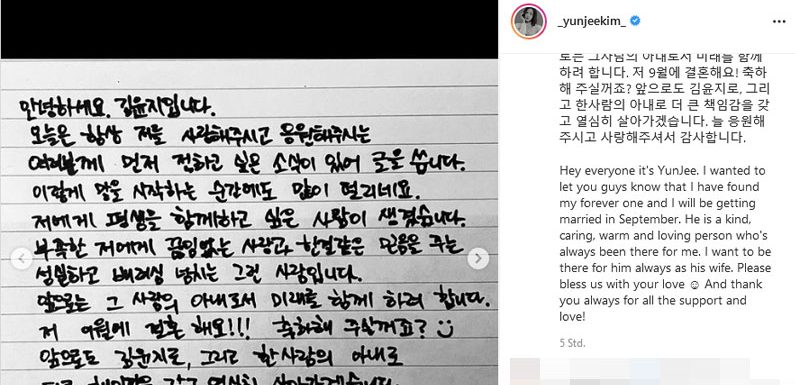 안녕하세요. 김윤지입니다.
오늘은 항상 저를 사랑해주시고 응원해주시는
여러분께 먼저 전하고 싶은 소식이 있어 글을 씁니다.
이렇게 말을 시작하는 순간에도 많이 떨리네요.
저에게 평생을 함께하고 싶은 사람이 생겼습니다.
부족한 저에게 끊임없는 사랑과 한결같은 믿음을 주는
성실하고 배려심 넘치는 그런 사람입니다.
앞으로는 그 사람의 아내로서 미래를 함께 하려 합니다.
저 9월에 결혼해요!!! 축하해 주실꺼죠? ☺
앞으로도 김윤지로, 그리고 한사람의 아내로
_yunjeekim_
로는 그사람의 아내로서 미래를 함께
하려 합니다. 저 9월에 결혼해요! 축하
해 주실꺼죠? 앞으로도 김윤지로, 그리
고 한사람의 아내로 더 큰 책임감을 갖
고 열심히 살아가겠습니다. 늘 응원해
주시고 사랑해주셔서 감사합니다.
Hey everyone it's YunJee. I wanted to
let you guys know that I have found
my forever one and I will be getting
married in September. He is a kind,
caring, warm and loving person who's
always been there for me. I want to be
there for him always as his wife. Please
bless us with your love ☺ And thank
you always for all the support and
love!
5 Std.